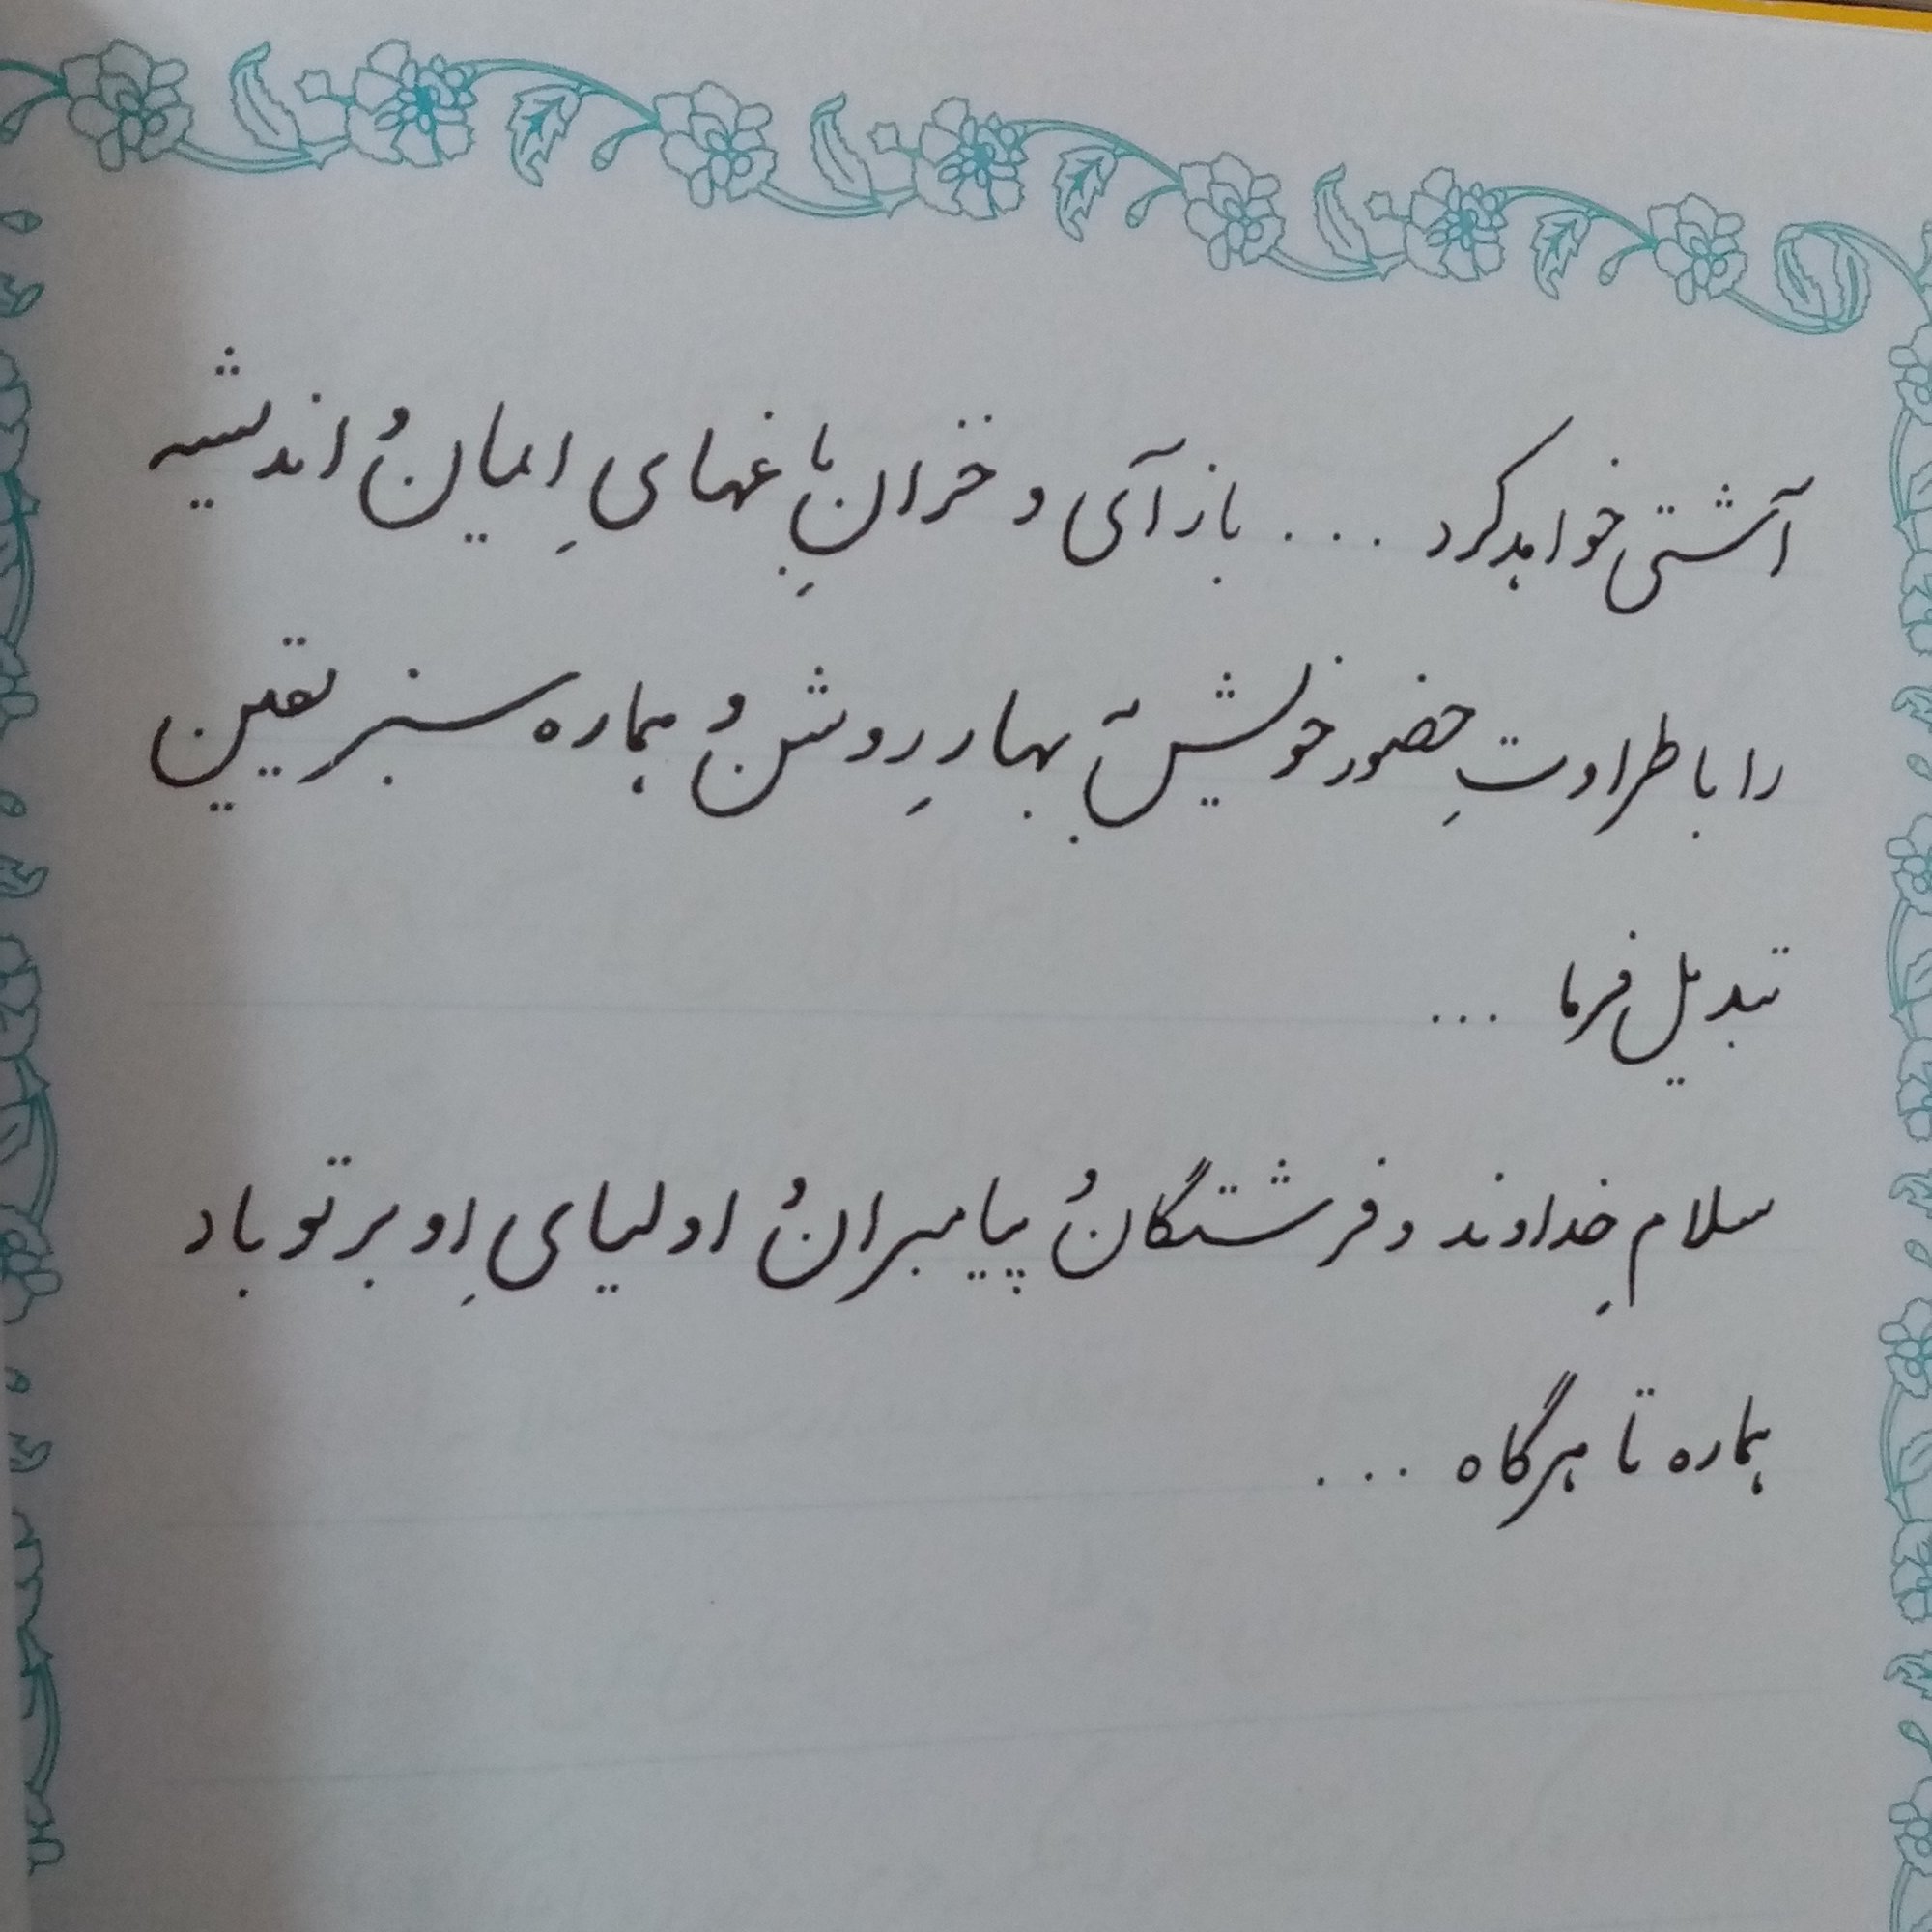 آشتی خواهد کرد ... باز آی و خزانِ باغهای اِیمانُ اندیشه
را با طراوتِ حضور خویش به بهارِ روشنُ هماره سبز یقین
تبدیل فرما ...
سلامِ خداوند و فرشتگانُ پیامبرانُ اولیایِ او بر تو باد
هماره تا هرگاه ...